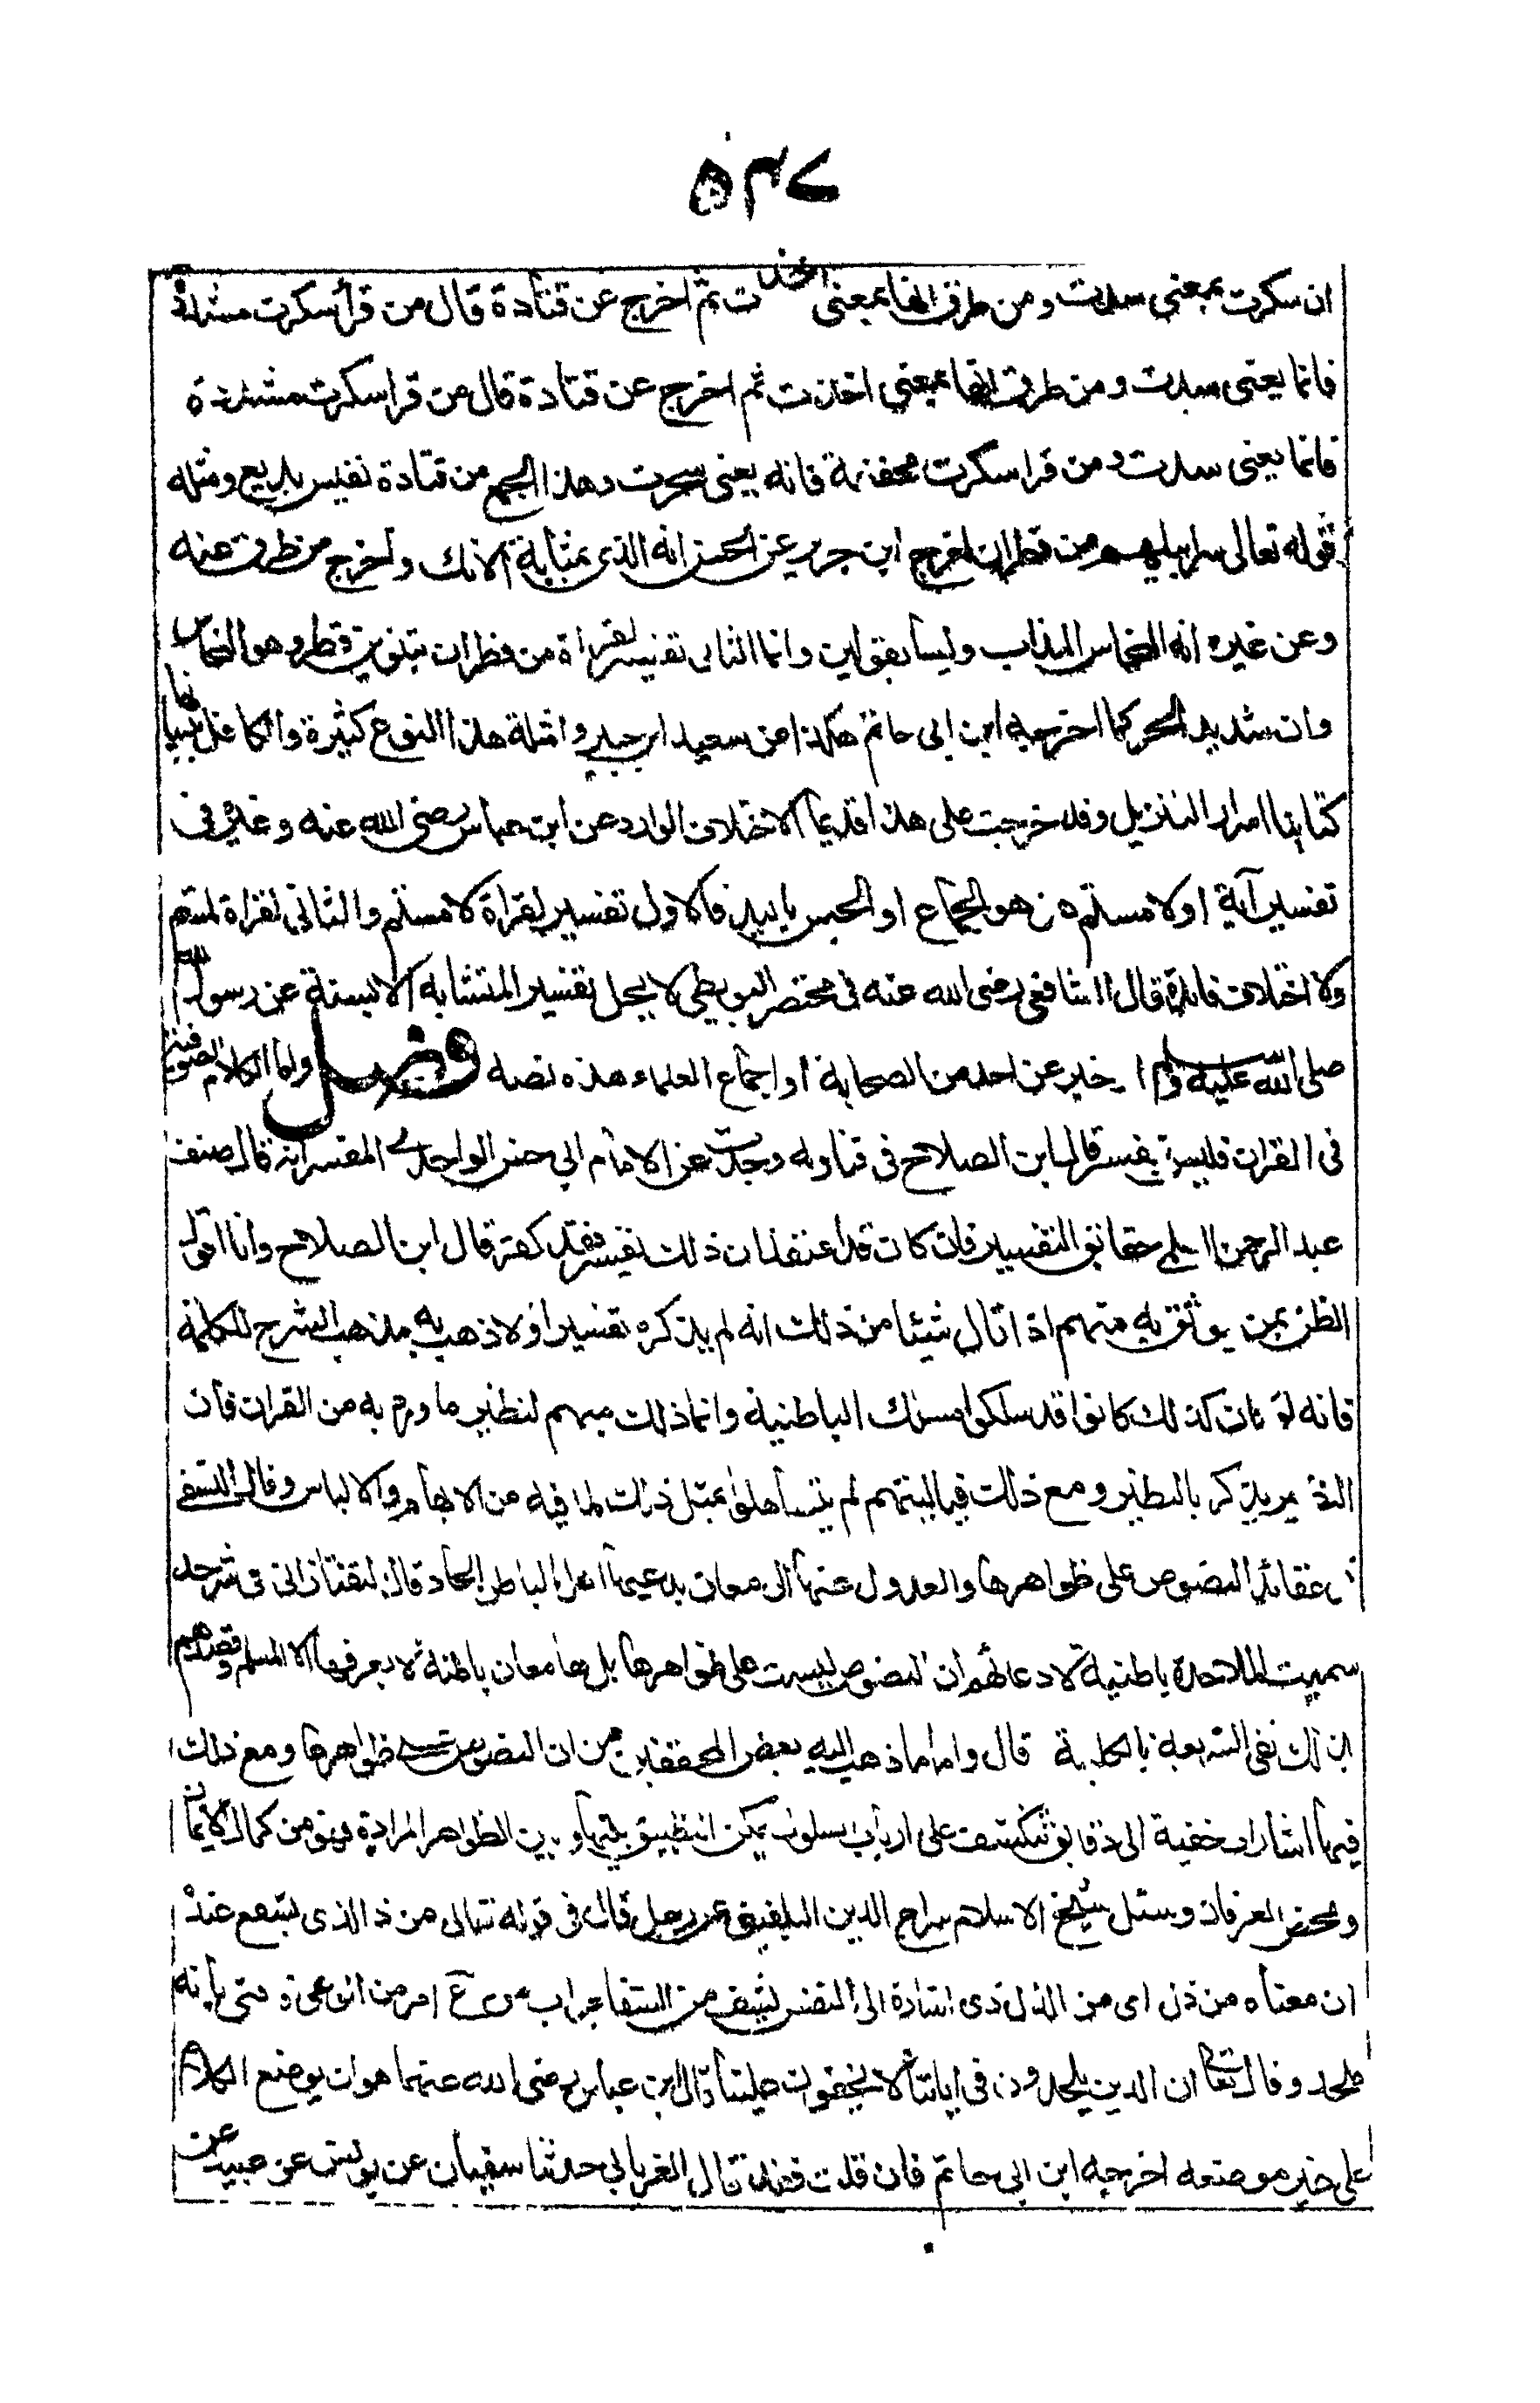 ٥٣٧
ان سكرت بمعنى سدت ومن طرق انها بمعنى اخذت ثم اخرج عن قتادة قال من قرأ سكرت مشددة
فانما يعنى سدت ومن طريق انها بمعنى اخذت ثم اخرج عن قتادة قال من قرا سكرت مشددة
فانما يعنى سدت ومن قرا سكرت مخففة فانه يعنى سحرت وهذا الجمع من قتادة نفيس بديع ومثله
قوله تعالى سرابيلهم من قطران اخرج ابن جرير عن الحسن انه الذى تهنأ به الابل واخرج من طرق عنه
وعن غيره انه النحاس المذاب وليسا بقولين وانما الثانى تفسير لقراة من قطران بتنوين قطر وهو النحاس
وان شديد الحر كما اخرجه ابن ابى حاتم هكذا عن سعيد ابن جبير وامثلة هذا النوع كثيرة والكافل ببيانها
كتابنا اسرار التنزيل وقد خرجت على هذا قديما الاختلاف الوارد عن ابن عباس رضى الله عنه وغيره فى
تفسير آية او لامستم هل هو الجماع او الجس باليد فالاول تفسير لقراة لامستم والثانى لقراة لمستم
ولا اختلاف فائدة قال الشافعى رضى الله عنه فى مختصر البويطى لا يحل تفسير المتشابه الا بسنة عن رسول الله
صلى الله عليه وسلم او خبر عن احد من الصحابة او اجماع العلماء هذه نصه فصل واما الكلام الصوفية
فى القران فليس بتفسير قال ابن الصلاح فى فتاويه وجدت عن الامام ابى حسن الواحدى المفسر انه قال صنف
عبد الرحمن السلمى حقائق التفسير فان كان قد اعتقد ان ذلك تفسير فقد كفر قال ابن الصلاح وانا اقول
الظن بمن يوثق به منهم اذا قال شيئا من ذلك انه لم يذكره تفسيرا ولا ذهب به مذهب الشرح للكلمة
فانه لو كان كذلك كانوا قد سلكوا مسلك الباطنية وانما ذلك منهم لنظير ما ورد به من القران فان
النظير يذكر بالنظير ومع ذلك فيا ليتهم لم يتساهلوا بمثل ذلك لما فيه من الابهام والالباس وقال النسفى
فى عقائد النصوص على ظواهرها والعدول عنها الى معان يدعيها اهل الباطن الحاد قال التفتازانى فى شرحه
سميت الملاحدة باطنية لادعائهم ان النصوص ليست على ظواهرها بل لها معان باطنة لا يعرفها الا المعلم وقصدهم
بذلك نفى الشريعة بالكلية قال واما ما ذهب اليه بعض المحققين من ان النصوص على ظواهرها ومع ذلك
فيها اشارات خفية الى دقايق تنكشف على ارباب السلوك يمكن التطبيق بينها وبين الظواهر المرادة فهو من كمال الايمان
ومحض العرفان وسئل شيخ الاسلام سراج الدين البلقينى عن رجل قال فى قوله تعالى من ذا الذى يشفع عنده
ان معناه من ذل اى من الذل ذى اشارة الى النفس يشف من الشفا جواب من ع امر من الوعى فافتى بانه
ملحد وقال تعالى ان الذين يلحدون فى اياتنا لا يخفون علينا قال ابن عباس رضى الله عنهما هو ان يوضع الكلام
على غير موضعه اخرجه ابن ابى حاتم فان قلت فقد قال الفريابى حدثنا سفيان عن يونس عن عبيد عن